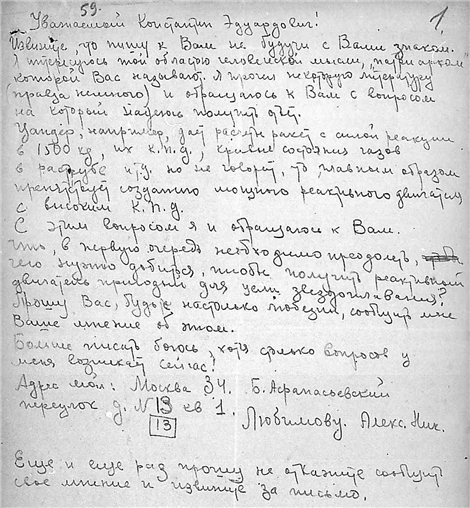 59.
1.
Уважаемый Константин Эдуардович!
Извините, что пишу к Вам не будучи с Вами знаком.
Я интересуюсь той областью человеческой мысли, "патриархом"
которой Вас называют. Я прочел некоторую литературу
(правда немного) и обращаюсь к Вам с вопросом
на который надеюсь получить ответ.
Цандер, например, дает расчеты ракет с силой реакции
в 1500 кг, их к.п.д., кривые состояния газов
в раструбе и т.д. но не говорит, что главным образом
препятствует созданию мощного реактивного двигателя
с высоким к.п.д.
С этим вопросом я и обращаюсь к Вам.
Что, в первую очередь необходимо преодолеть,
чего нужно добиться, чтобы получить реактивный
двигатель пригодный для цели звездоплавания?
Прошу Вас, будьте настолько любезны, сообщить мне
Ваше мнение об этом.
Больше писать боюсь, хотя столько вопросов у
меня возникает сейчас!
Адрес мой: Москва 34. Б. Афанасьевский
переулок д. № 13 кв 1. Любимову. Алекс. Ник.
13
Еще и еще раз прошу не откажите сообщить
свое мнение и извините за письмо.